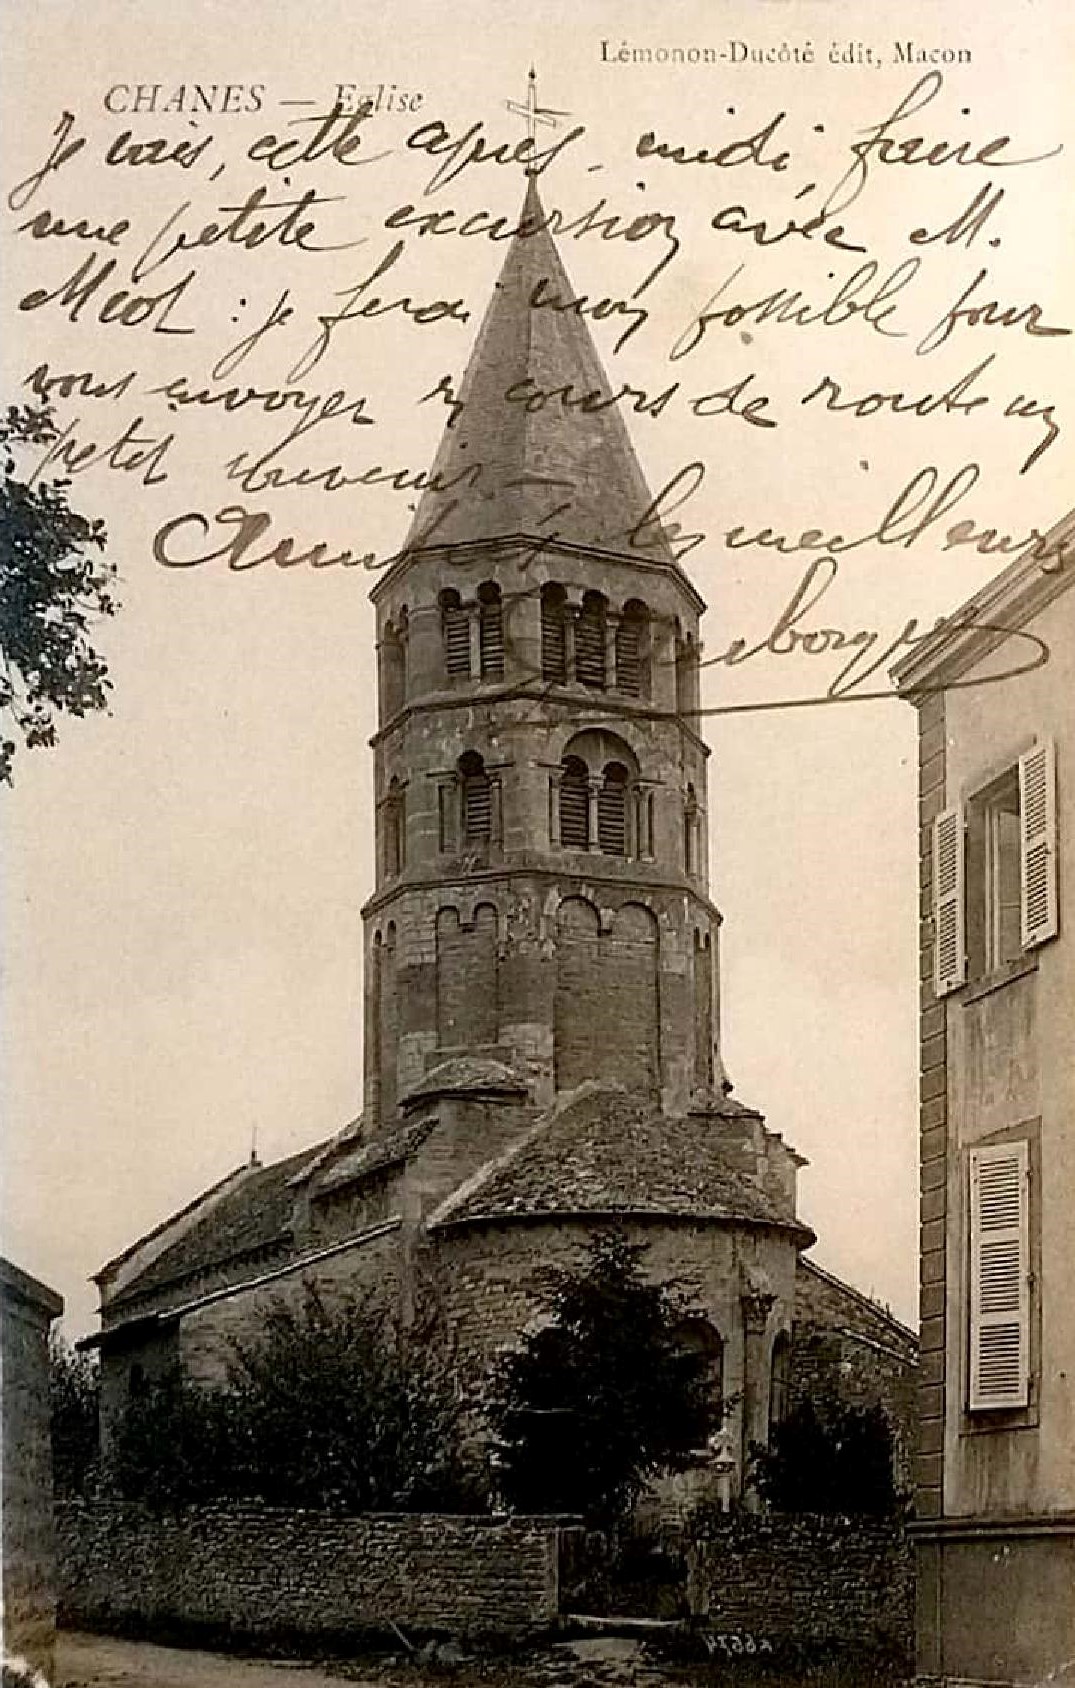 Lémonon-Ducôté édit, Macon
CHANES — Eglise
Je vais, cette après-midi, faire
une petite excursion avec M.
: je ferai mon possible pour
vous envoyer en cours de route un
petit souvenir —
Amitiés les meilleures